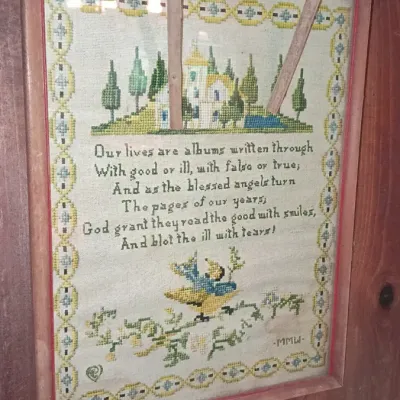 Our lives are albums written through
With good or ill, with false or true;
And as the blessed angels turn
The pages of our years,
God grant they read the good with smiles,
And blot the ill with tears!